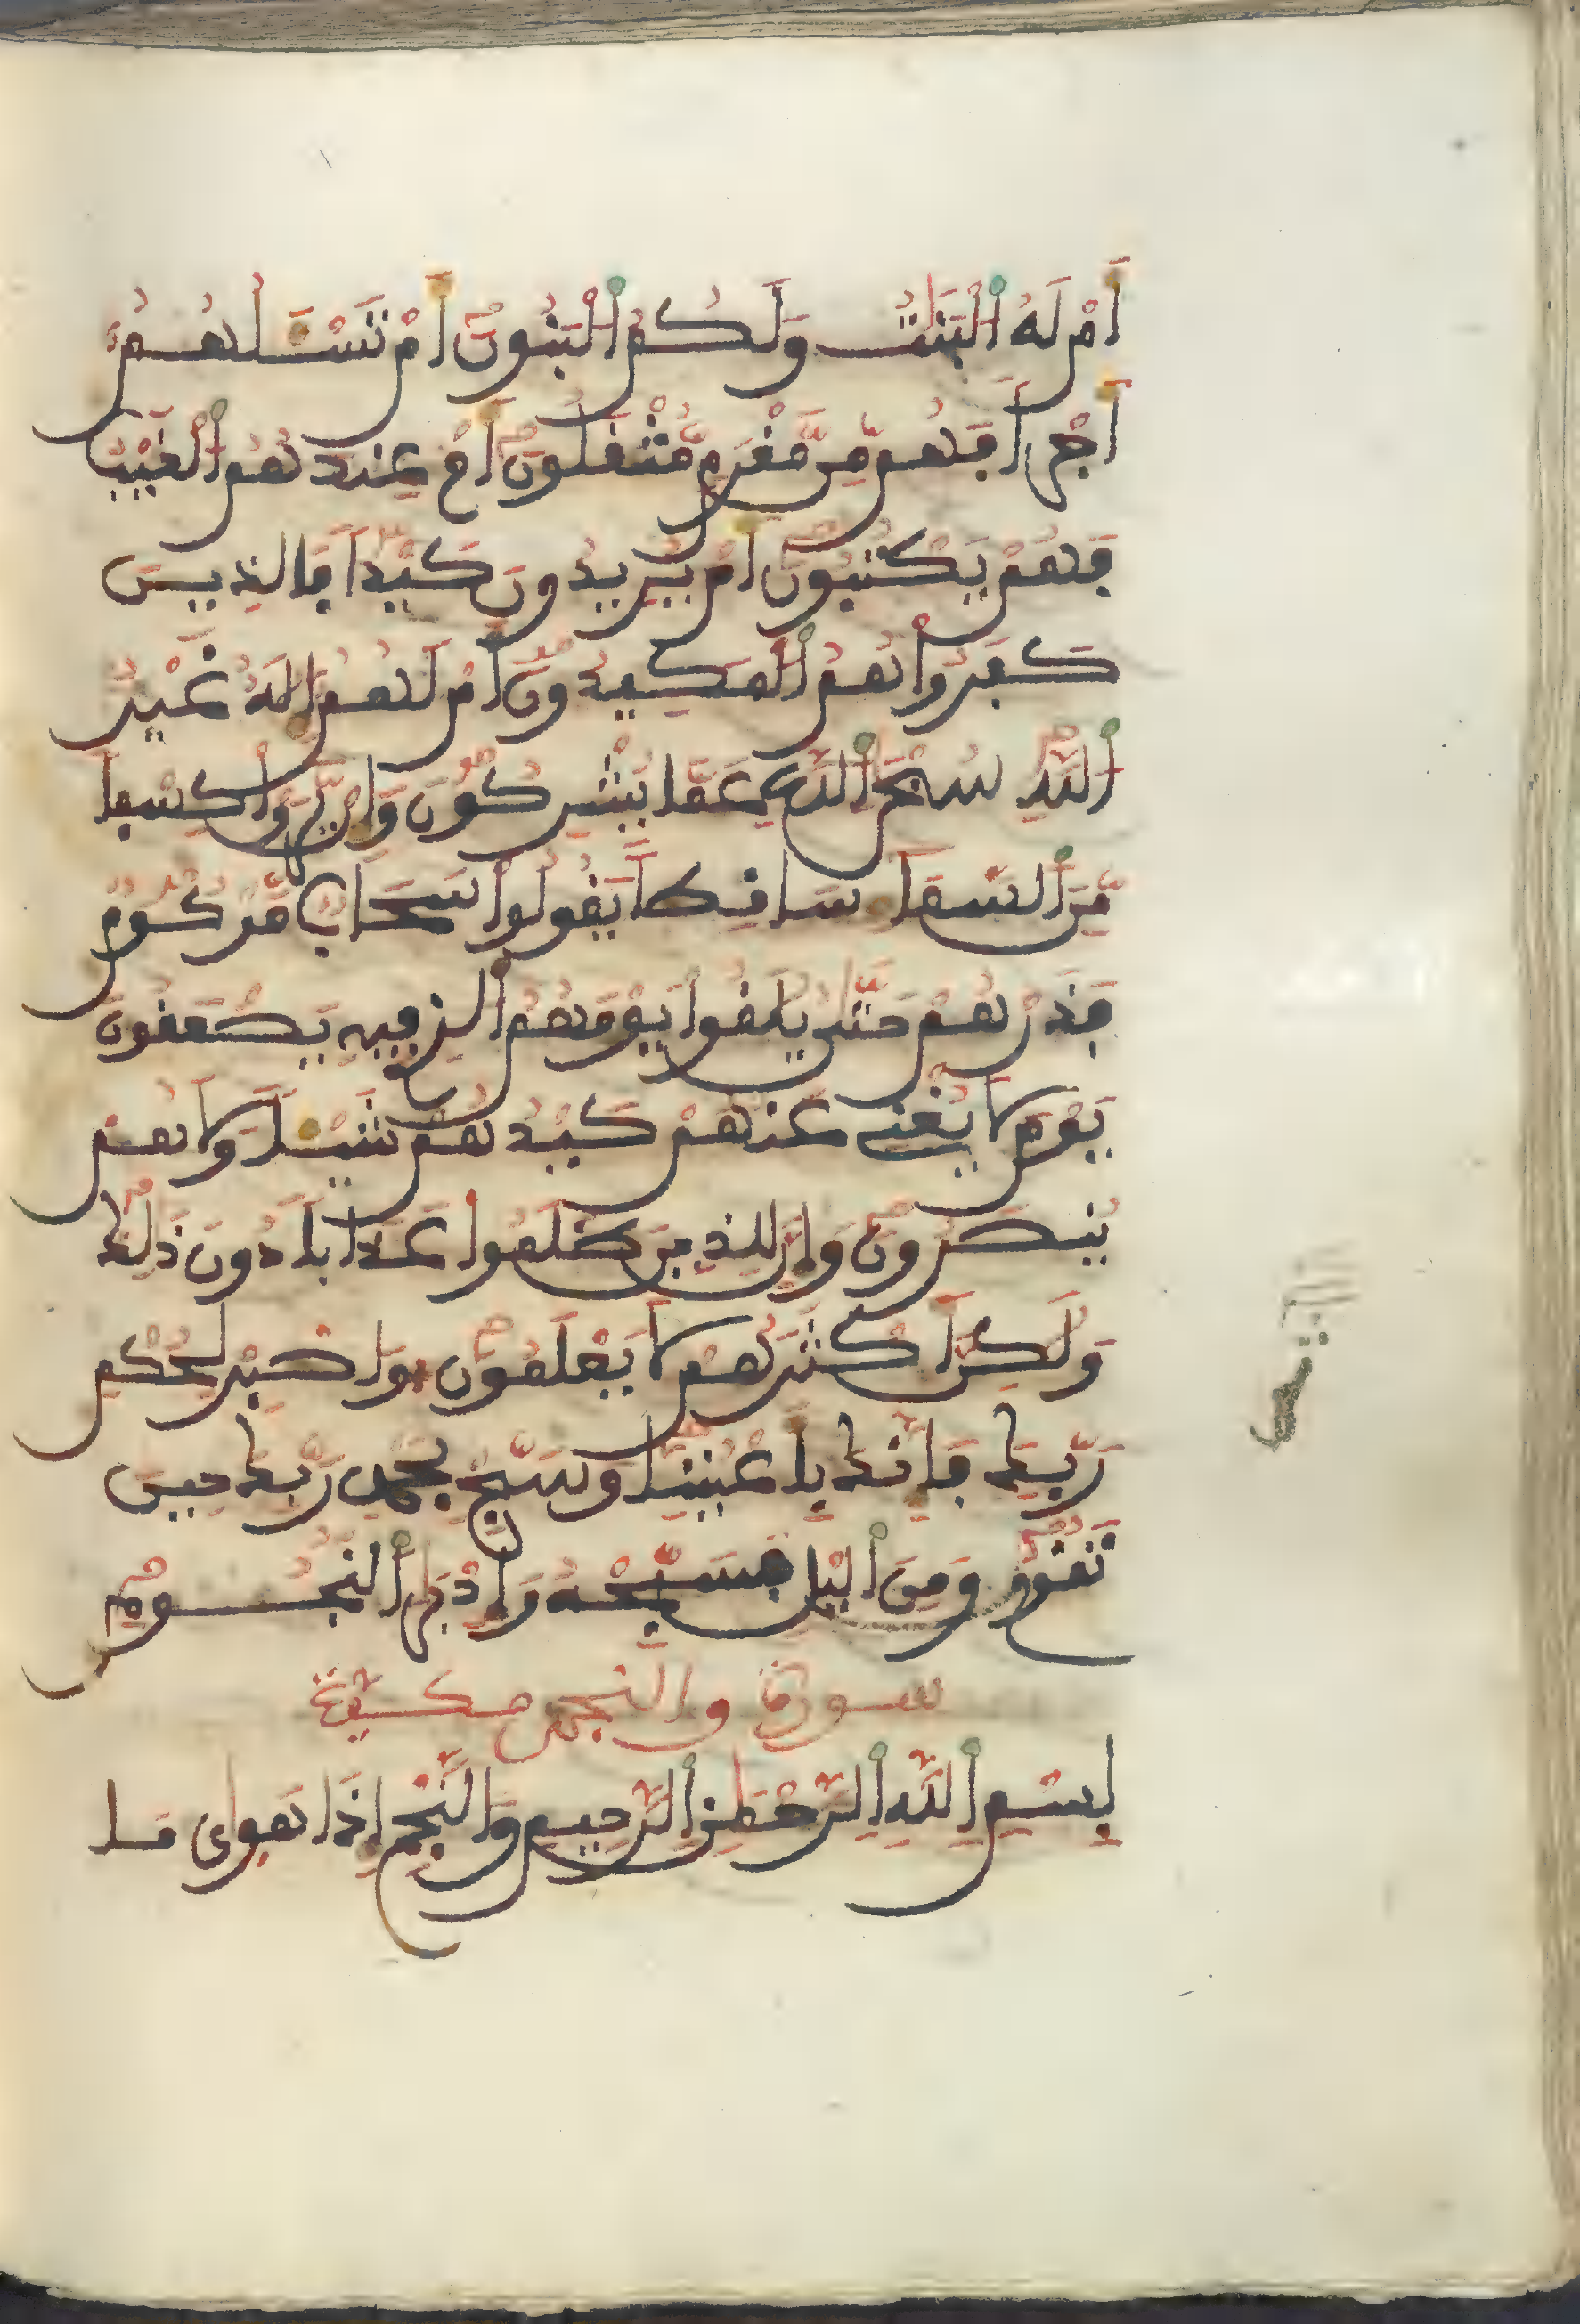 أَمْ لَهُ اُ۬لْبَنَٰتُ وَلَكُمُ اُ۬لْبَنُونَ أَمْ تَسْـَٔلُهُمُۥٓ
أَجْراٗ فَهُم مِّن مَّغْرَمٖ مُّثْقَلُونَ أَمْ عِندَهُمُ اُ۬لْغَيْبُ
فَهُمْ يَكْتُبُونَ أَمْ يُرِيدُونَ كَيْداٗ فَالذِينَ
كَفَرُواْ هُمُ اُ۬لْمَكِيدُونَ أَمْ لَهُمُۥٓ إِلَٰهٌ غَيْرُ
اُ۬للَّهِ سُبْحَٰنَ اَ۬للَّهِ عَمَّا يُشْرِكُونَ وَإِنْ يَّرَوْاْ كِسْفاٗ
مِّنَ اَ۬لسَّمَآءِ سَاقِطاٗ يَقُولُواْ سَحَابٞ مَّرْكُومٞ
فَذَرْهُمْ حَتَّىٰ يُلَٰقُواْ يَوْمَهُمُ اُ۬لذِے فِيهِ يَصْعَقُونَ
يَوْمَ لَا يُغْنِے عَنْهُمْ كَيْدُهُمْ شَيْـٔاٗ وَلَا هُمْ
يُنصَرُونَ وَإِنَّ لِلذِينَ ظَلَمُواْ عَذَاباٗ دُونَ ذَٰلِكَ
وَلَٰكِنَّ أَكْثَرَهُمْ لَا يَعْلَمُونَ وَاصْبِرْ لِحُكْمِ
رَبِّكَ فَإِنَّكَ بِأَعْيُنِنَا وَسَبِّحْ بِحَمْدِ رَبِّكَ حِينَ
تَقُومُ وَمِنَ اَ۬ليْلِ فَسَبِّحْهُ وَإِدْبَٰرَ اَ۬لنُّجُومِ
سورة والنجم مكية
بِسْمِ اِ۬للَّهِ اِ۬لرَّحْمَٰنِ اِ۬لرَّحِيمِ وَالنَّجْمِ إِذَا هَوَىٰ مَا